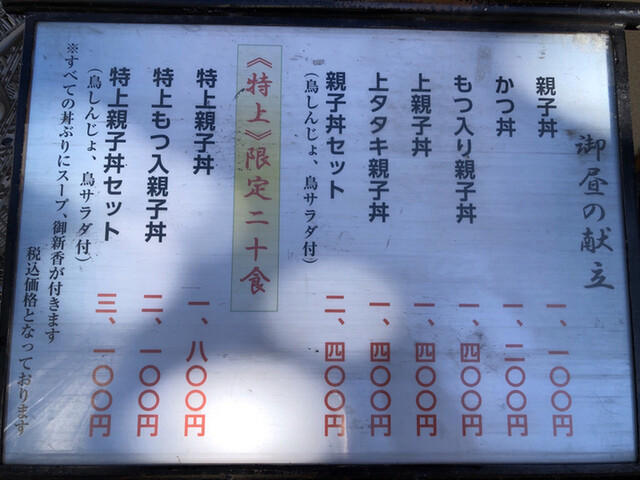 御昼の献立
親子丼 一、一〇〇円
かつ丼 一、二〇〇円
もつ入り親子丼 一、四〇〇円
上親子丼 一、四〇〇円
上タタキ親子丼 一、四〇〇円
親子丼セット 二、四〇〇円
(鳥しんじょ、鳥サラダ付)
《特上》限定二十食
特上親子丼 一、八〇〇円
特上もつ入親子丼 二、一〇〇円
特上親子丼セット 三、一〇〇円
(鳥しんじょ、鳥サラダ付)
※すべての丼ぶりにスープ、御新香が付きます
税込価格となっております